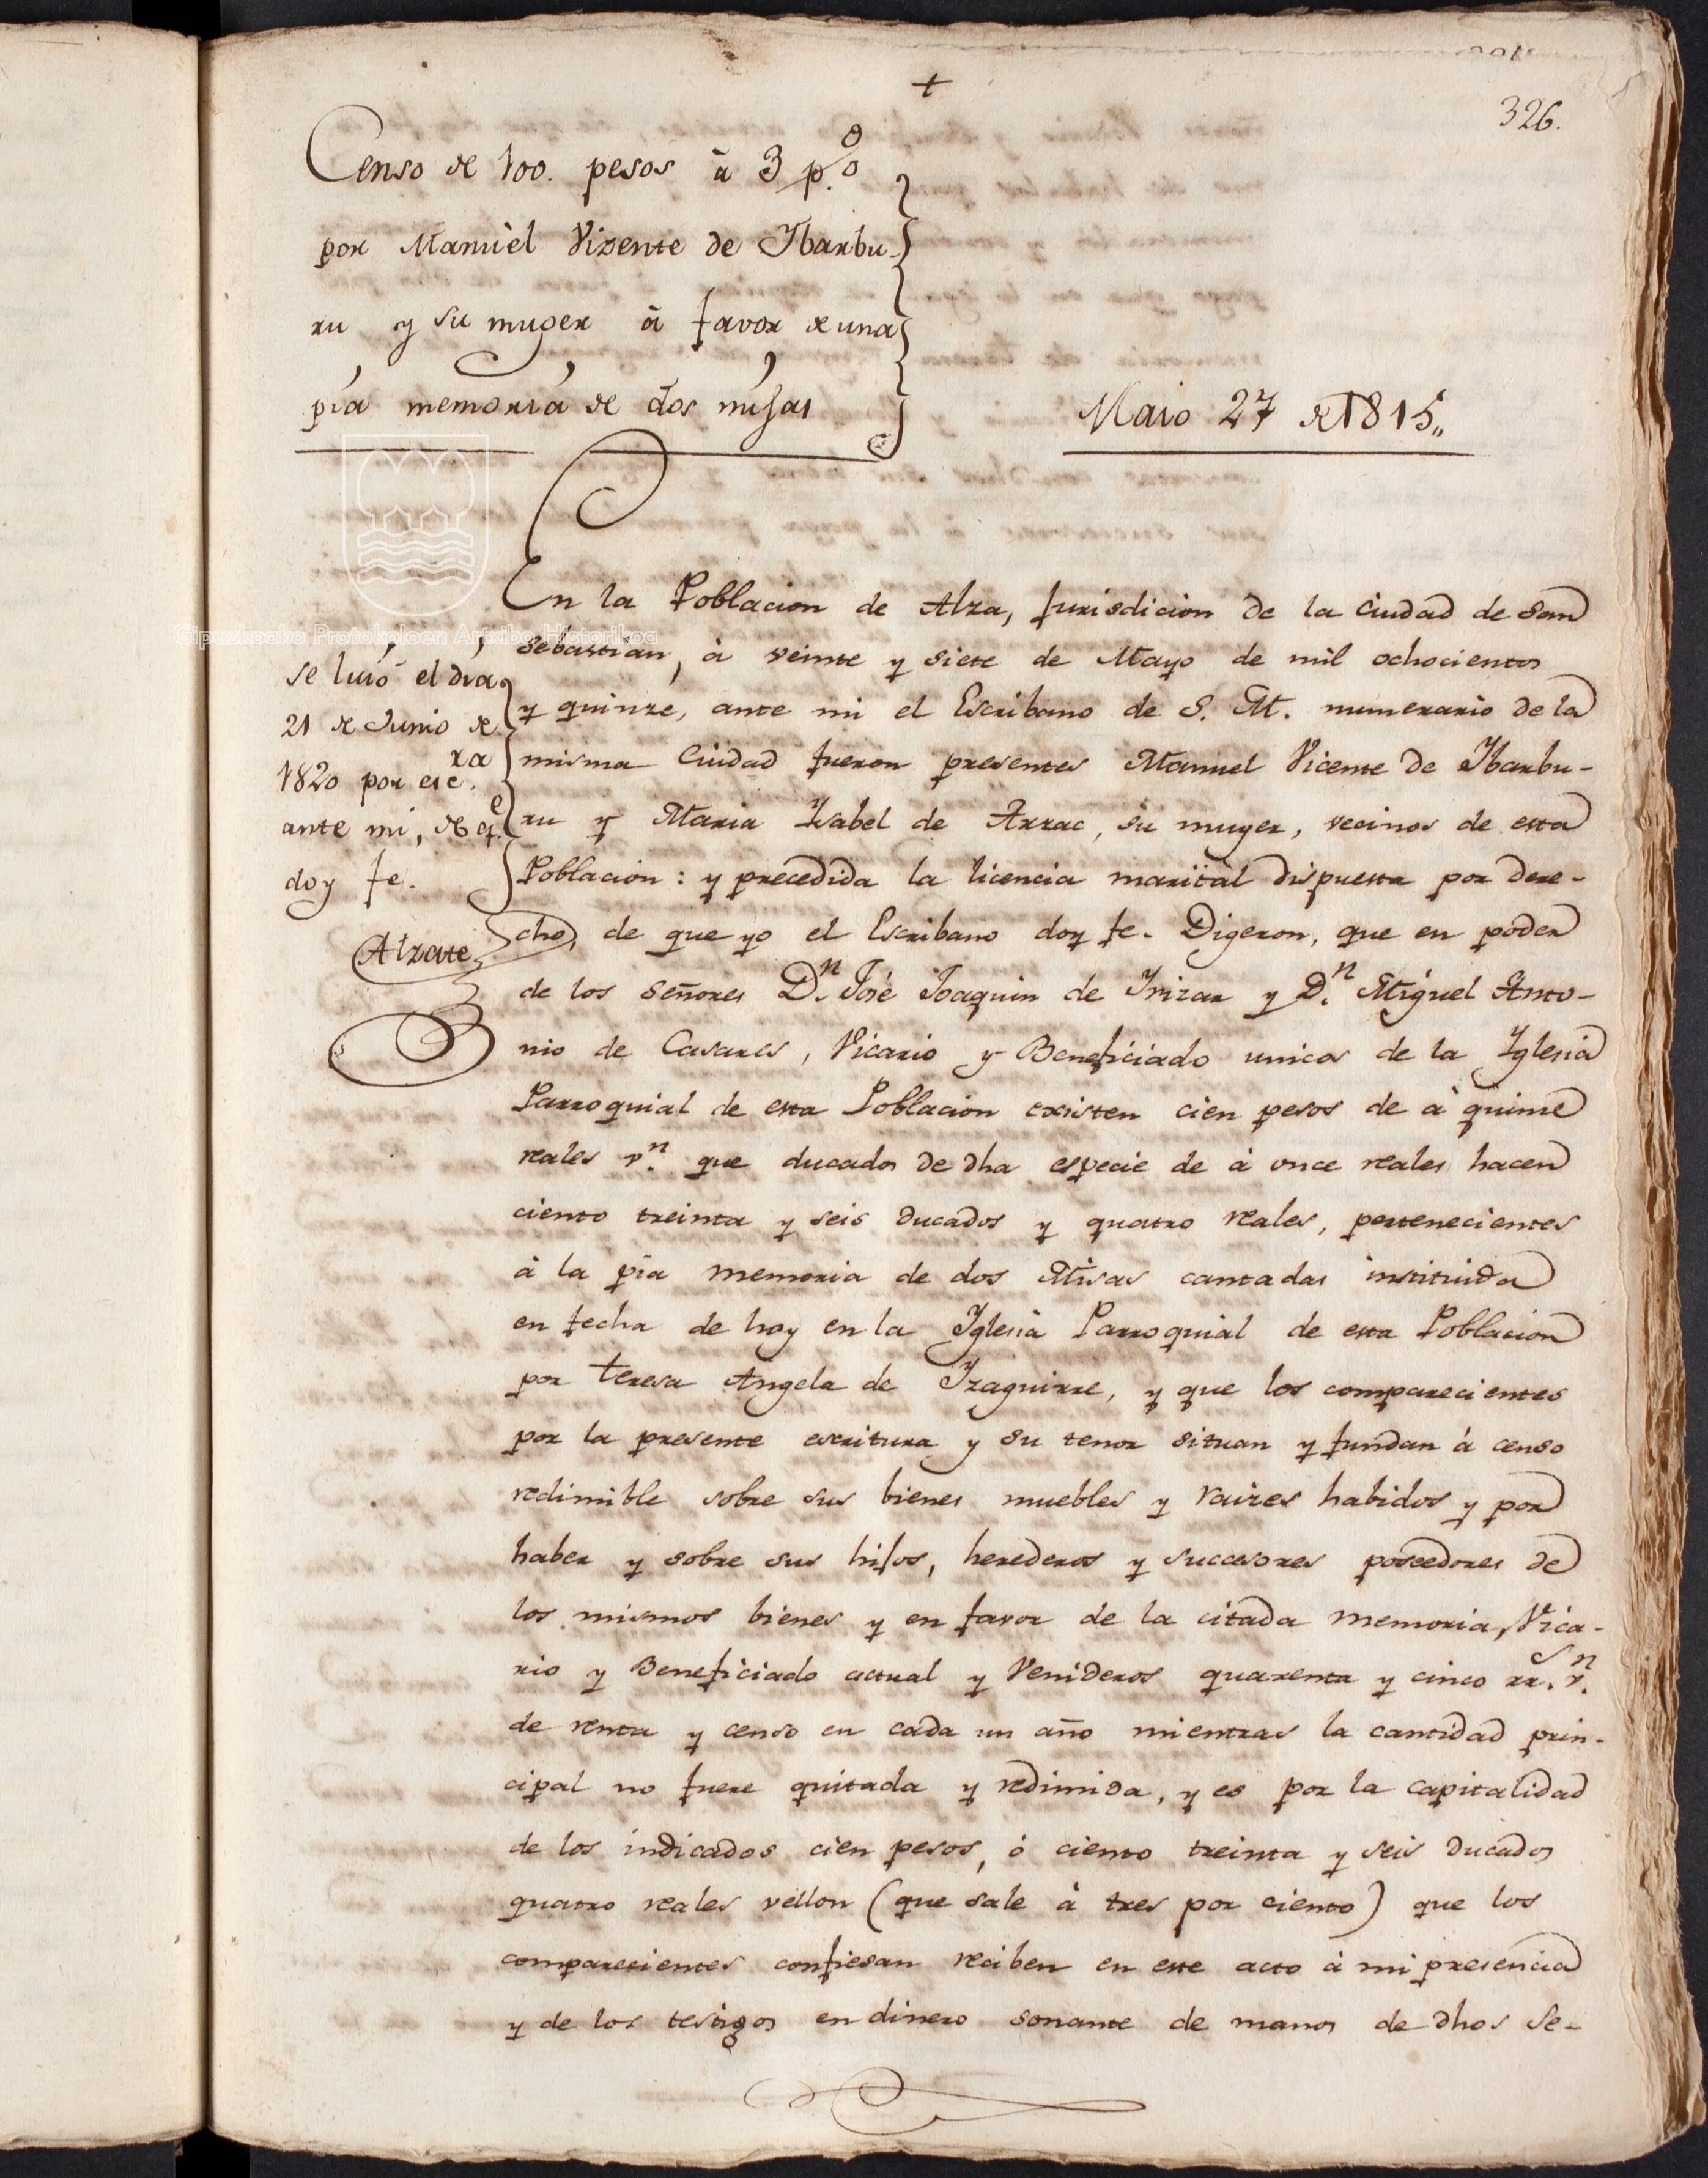 +
326.
Censo de 100. pesos à 3 p.% 
por Manuel Vizente de Ybarbu-
ru y su muger à favor de una
pia memoria de dos misas
Maio 27 de 1815,,
En la Poblacion de Alza, jurisdicion de la Ciudad de San
Sebastian, à veinte y siete de Mayo de mil ochocientos
y quinze, ante mi el Escribano de S. M. numerario de la
misma Ciudad fueron presentes Manuel Vicente de Ybarbu-
ru y Maria Ysabel de Arrac, su muger, vecinos de esta
Poblacion: y precedida la licencia marital dispuesta por dere-
cho, de que yo el Escribano doy fe. Digeron, que en poder
de los Señores D.n José Joaquin de Yrizar y D.n Miguel Anto-
nio de Casares, Vicario y Beneficiado unicos de la Yglesia
Parroquial de esta Poblacion existen cien pesos de à quince
reales v.n que ducados de dha especie de à once reales hacen
ciento treinta y seis ducados y quatro reales, pertenecientes
à la pia memoria de dos Misas cantadas instituida
en fecha de hoy en la Yglesia Parroquial de esta Poblacion
por Teresa Angela de Yzaguirre, y que los comparecientes
por la presente escritura y su tenor situan y fundan à censo
redimible sobre sus bienes muebles y raizes habidos y por
haber y sobre sus hijos, herederos y succesores poseedores de
los mismos bienes y en favor de la citada memoria, Vica-
rio y Beneficiado actual y Venideros quarenta y cinco rr.s v.n
de renta y censo en cada un año mientras la cantidad prin-
cipal no fuere quitada y redimida, y es por la capitalidad
de los indicados cien pesos, ó ciento treinta y seis ducados
quatro reales vellon (que sale à tres por ciento) que los
comparecientes confiesan reciben en este acto à mi presencia
y de los testigos en dinero sonante de manos de dhos Se-
se luió el dia
21 de Junio de
1820 por esc.ra
ante mi, de q.e
doy fe.
Alzate
Gipuzkoako Protokoloen Artxibo Historikoa